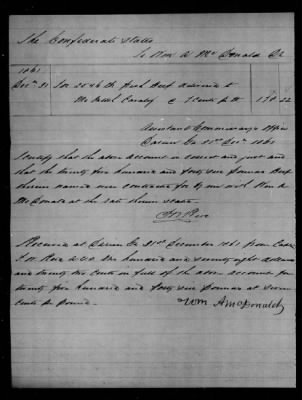 The Confederate States
To Wm A McDonald Dr
1861
Decr 31 For 2546 lb Fresh Beef delivered to
McIntosh Cavalry @ 7 cents per lb 178 22
Assistant Commissary's Office
Darien Ga 31st Decr 1861
I certify that the above account is correct and just and
that the twenty five hundred and forty six pounds Beef
therein named were contracted for by me with Wm A
McDonald at the rate therein stated
Received at Darien Ga 31st December 1861 from Capt
One hundred and seventy eight dollars
and twenty two cents in full of the above account for
twenty five hundred and forty six pounds at seven
cents per pound.
Wm A McDonald